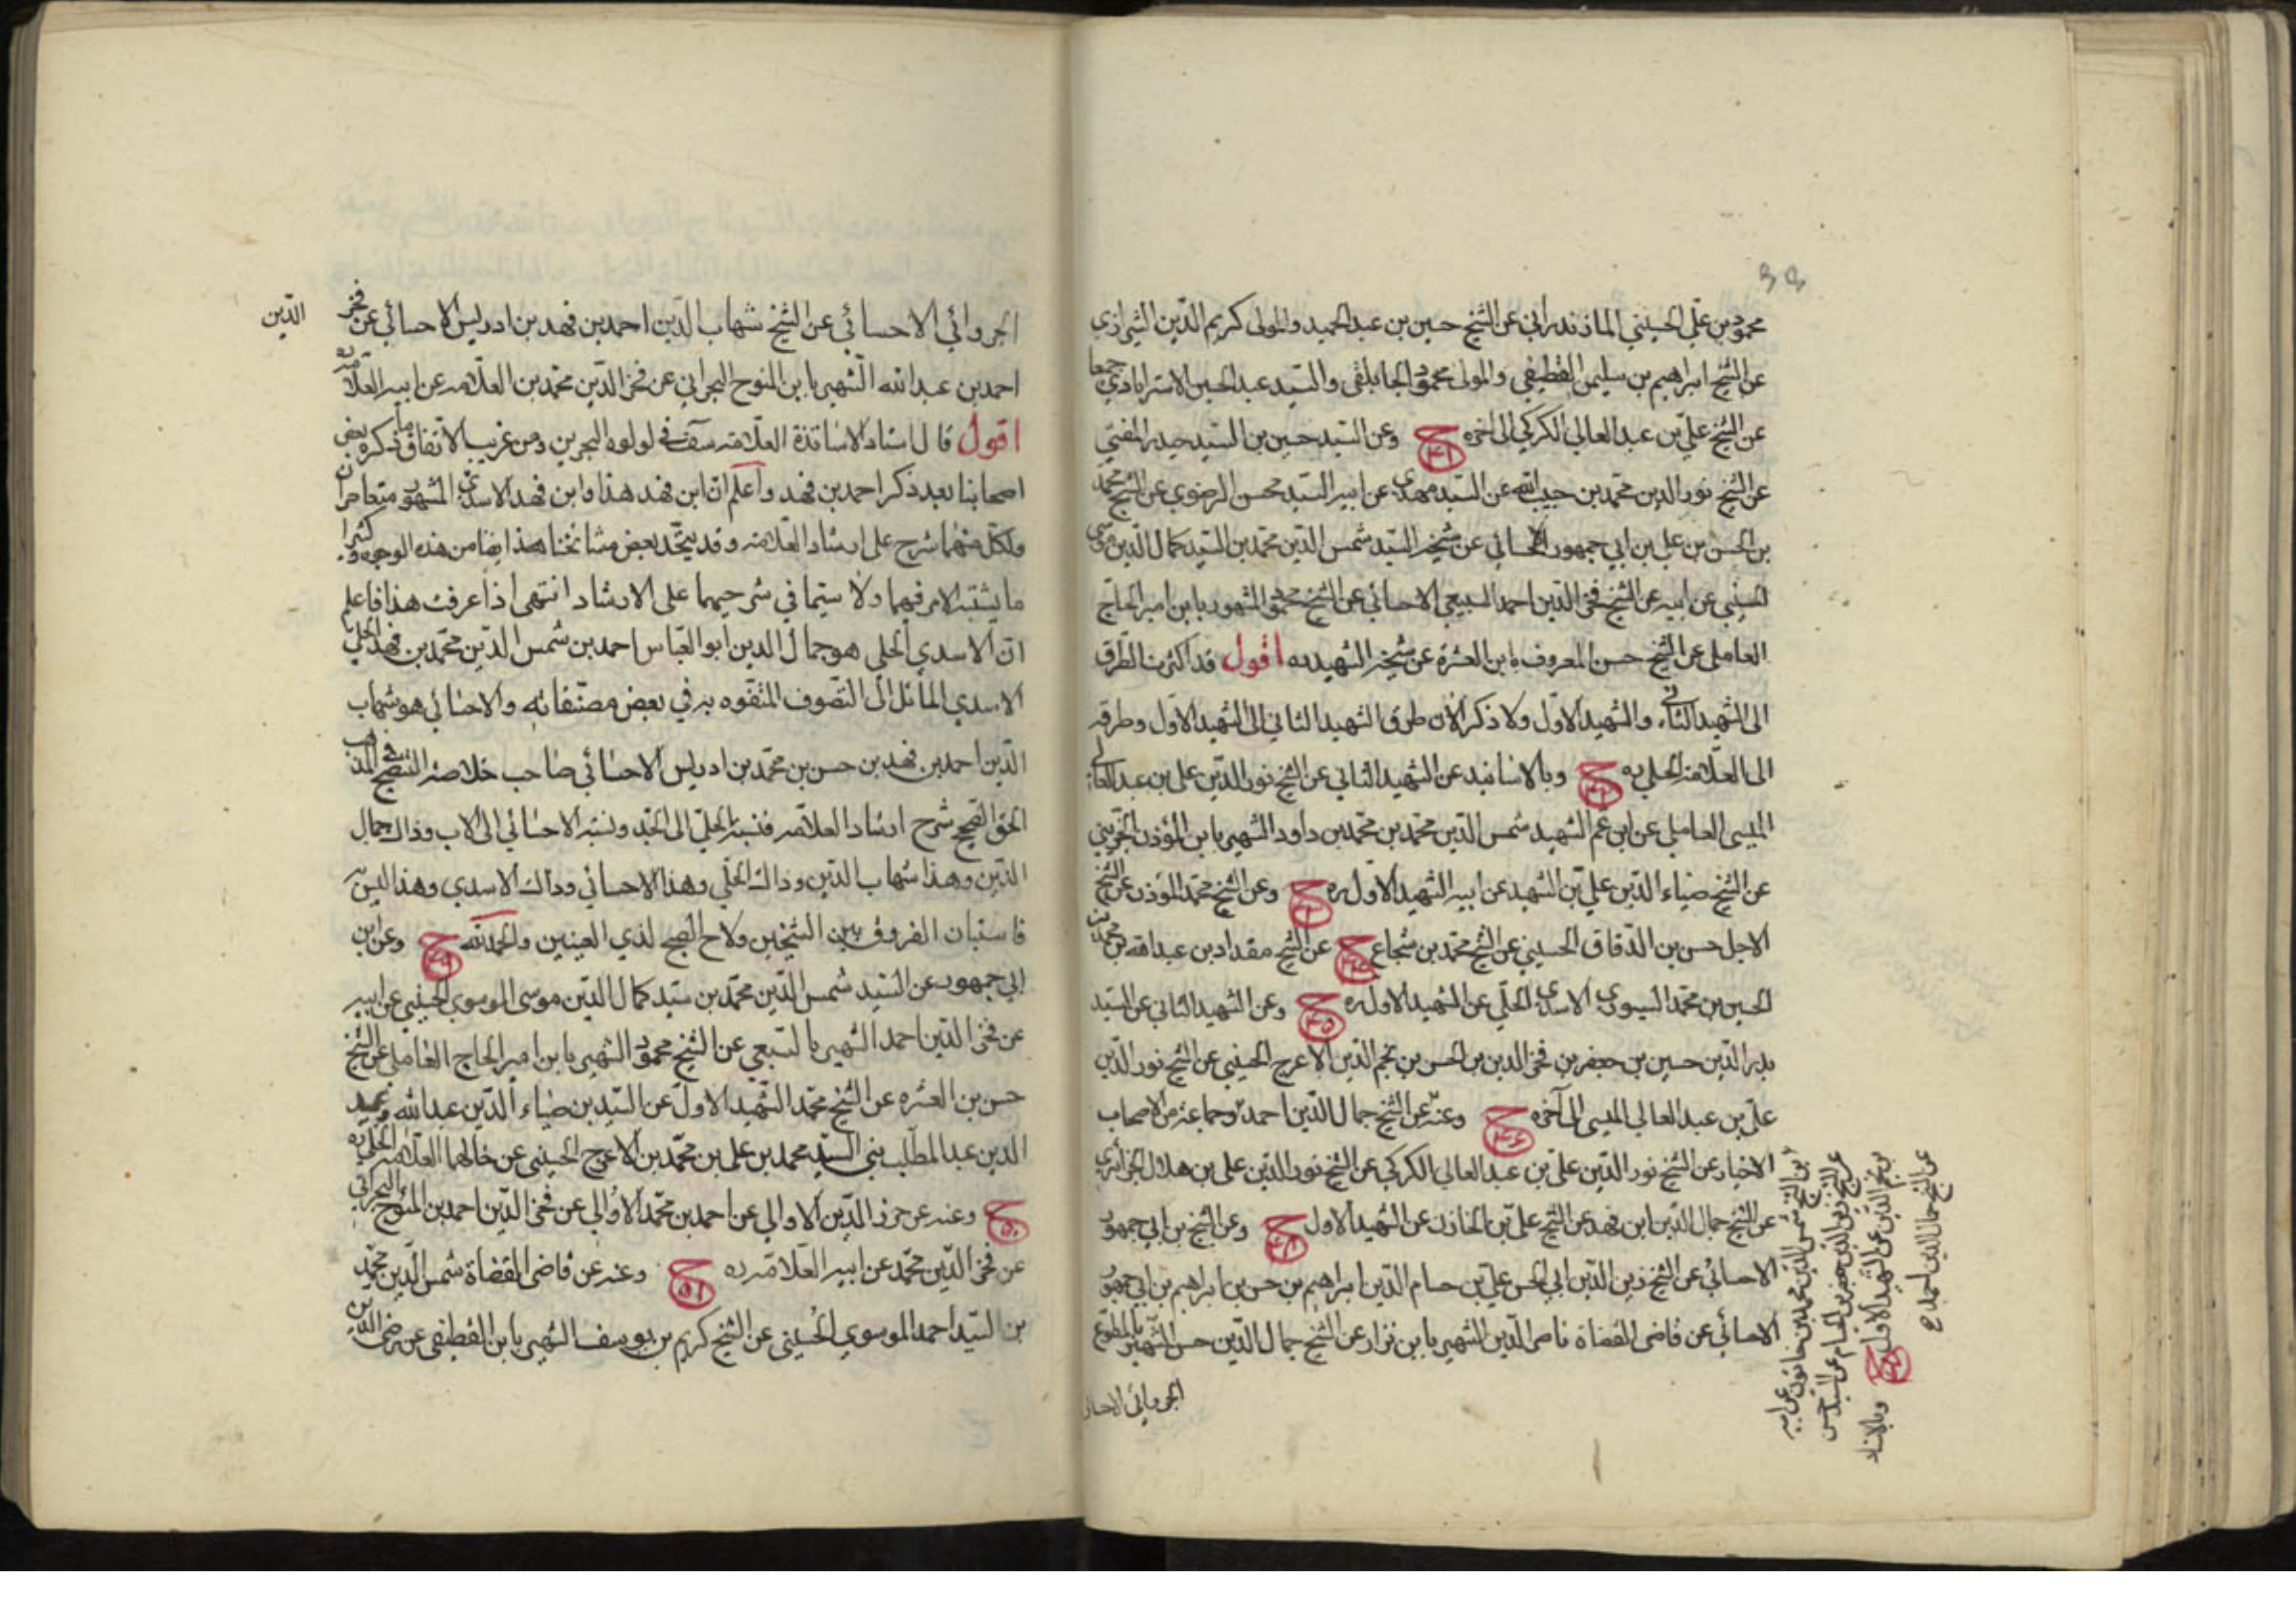 محمود بن علي الحسيني المازندراني عن الشيخ حسين بن عبد الحميد والمولى كريم الدين الشيرازي
عن الشيخ ابراهيم بن سليمن القطيفي والمولى محمود الجابلقي والسيد عبد الحي الاسترابادي جميعا
عن الشيخ علي بن عبد العالي الكركي الى اخره ح ٤١ وعن السيد حسين بن السيد حيدر المفتي
عن الشيخ نور الدين محمد بن حبيب الله عن السيد مهدي عن ابيه السيد محسن الرضوي عن الشيخ محمد
بن الحسن بن علي بن ابي جمهور الاحسائي عن شيخه السيد شمس الدين محمد بن السيد كمال الدين موسى
الحسيني عن ابيه عن الشيخ فخر الدين احمد السبيعي الاحسائي عن الشيخ محمود المشهور بابن امير الحاج
العاملي عن الشيخ حسن المعروف بابن العشرة عن شيخه الشهيد ره اقول قد اكثرنا الطرق
الى الشهيد الثاني والشهيد الاول ولا ذكر الان طرق الشهيد الثاني الى الشهيد الاول وطرقه
الى العلامة الحلي ره ح وبالاسانيد عن الشهيد الثاني عن الشيخ نور الدين علي بن عبد العالي
الميسي العاملي عن ابن عم الشهيد شمس الدين محمد بن محمد بن داود الشهير بابن المؤذن الجزيني
عن الشيخ ضياء الدين علي بن الشهيد عن ابيه الشهيد الاول ره ح وعن الشيخ محمد المؤذن عن الشيخ
الاجل حسن بن الدقاق الحسيني عن الشيخ محمد بن شجاع ح عن الشيخ مقداد بن عبد الله بن محمد بن
الحسين بن محمد السيوري الاسدي الحلي عن الشهيد الاول ره ح ٤٥ وعن الشهيد الثاني عن السيد
بدر الدين حسين بن جعفر بن فخر الدين بن الحسن بن نجم الدين الاعرج الحسيني عن الشيخ نور الدين
علي بن عبد العالي الميسي الى آخره ح ٤٦ وعنه عن الشيخ جمال الدين احمد وجماعة من الاصحاب
الاخيار عن الشيخ نور الدين علي بن عبد العالي الكركي عن الشيخ نور الدين علي بن هلال الجزائري
عن الشيخ جمال الدين ابن فهد عن الشيخ علي بن الخازن عن الشهيد الاول ح وعن الشيخ بن ابي جمهور
الاحسائي عن الشيخ زين الدين ابي الحسن علي بن حسام الدين ابراهيم بن حسن بن ابراهيم بن ابي جمهور
الاحسائي عن قاضي القضاة ناصر الدين الشهير بابن نزار عن الشيخ جمال الدين حسن الشهير بالمطوع
الجروائي الاحسا
ابن الشيخ شمس الدين محمد بن خاتون عن ابيه
عن الشيخ زين الدين جعفر بن الحسام عن السيد حسن
بن نجم الدين عن الشهيد الاول ح وبالاسناد
عن الشيخ جمال الدين احمد ح
الجروائي الاحسائي عن الشيخ شهاب الدين احمد بن فهد بن ادريس الاحسائي عن فخر الدين
احمد بن عبد الله الشهير بابن المتوج البحراني عن فخر الدين محمد بن العلامة عن ابيه العلامة ره
اقول قال استاد الاساتذة العلامة في لؤلؤه البحرين ومن غريب الاتفاق ما ذكره بعض
اصحابنا بعد ذكر احمد بن فهد واعلم ان ابن فهد هذا وابن فهد الاسدي المشهور متعاصران
ولكل منهما شرح على ارشاد العلامة وقد يتحد بعض مشائخنا هذا ايضا من هذه الوجوه و كثيرا
ما يشتبه الامر فيهما ولا سيما في شرحيهما على الارشاد انتهى اذا عرفت هذا فاعلم
ان الاسدي الحلي هو جمال الدين ابو العباس احمد بن شمس الدين محمد بن فهد الحلي
الاسدي المائل الى التصوف المتفوه به في بعض مصنفاته والاحسائي هو شهاب
الدين احمد بن فهد بن حسن بن محمد بن ادريس الاحسائي صاحب خلاصة التنقيح في المذهب
الحق الصحيح شرح ارشاد العلامة فنسبة الحلي الى الجد ونسبة الاحسائي الى الاب وذاك جمال
الدين وهذا شهاب الدين وذاك الحلي وهذا الاحسائي وذاك الاسدي وهذا ليس
فاستبان الفروق بين الشيخين ولاح الصبح لذي العينين والحمد لله ح ٤٩ وعن ابن
ابي جمهور عن السيد شمس الدين محمد بن سيد كمال الدين موسى الموسوي الحسيني عن ابيه
عن فخر الدين احمد الشهير بالسبعي عن الشيخ محمود الشهير بابن امير الحاج العاملي عن الشيخ
حسن بن العشره عن الشيخ محمد الشهيد الاول عن السيدين ضياء الدين عبد الله وعميد
الدين عبد المطلب بني السيد محمد بن علي بن محمد بن الاعرج الحسيني عن خالهما العلامة الحلي ره
ح ٥٠ وعنه عن حرز الدين الاوالي عن احمد بن محمد الاوالي عن فخر الدين احمد بن المتوج البحراني
عن فخر الدين محمد عن ابيه العلامة ره ح ٥١ وعنه عن قاضي القضاة شمس الدين محمد
بن السيد احمد الموسوي الحسيني عن الشيخ كريم بن يوسف الشهير بابن القطيفي عن رضي الدين